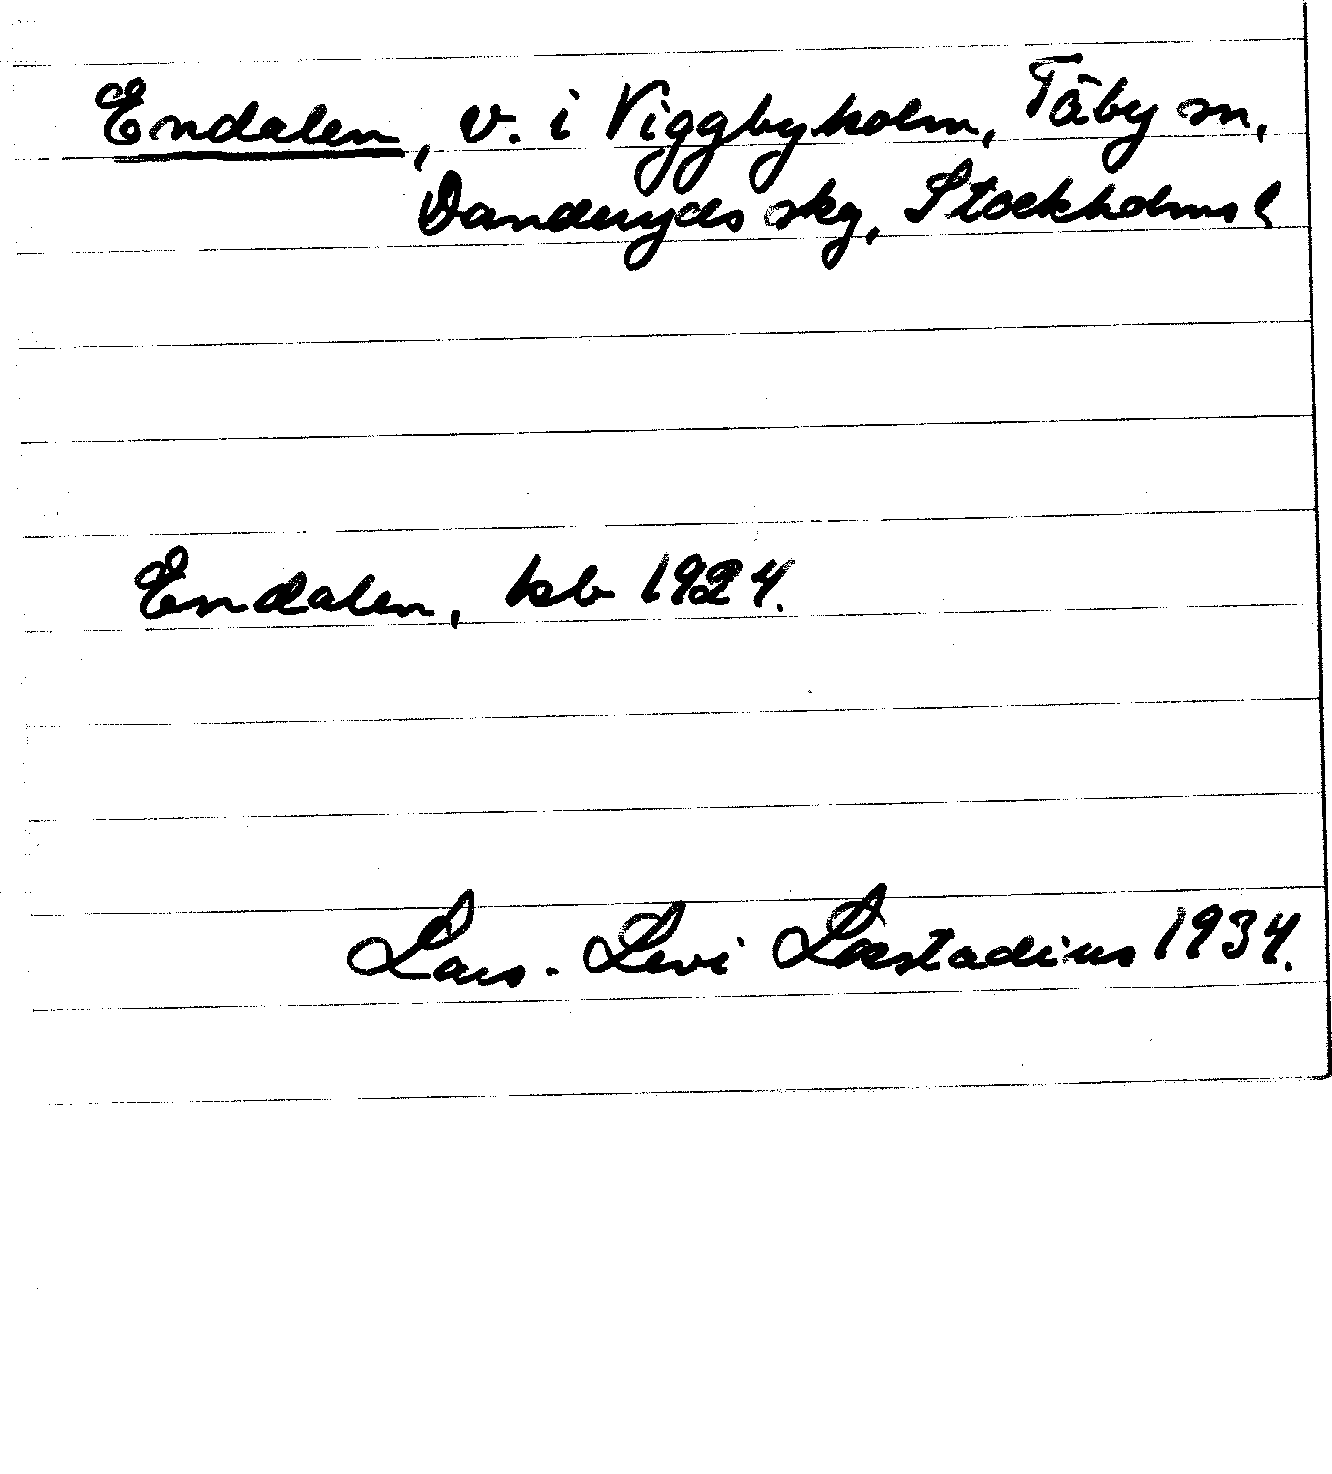 Endalen, v. i Viggbyholm, Täby sn,
Danderyds skg, Stockholms l
Endalen, kb 1924.
Lars-Levi Læstadius 1934.